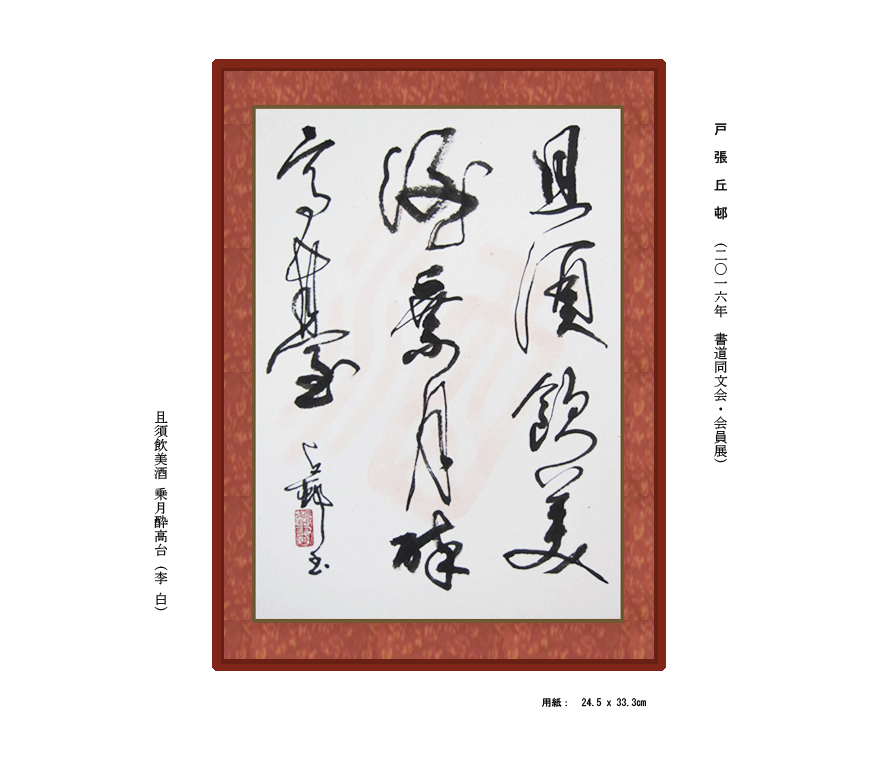 戸張丘邨 (二〇一六年 書道同文会・会員展)
且須飲美
酒乗月酔
高臺
且須飲美酒 乗月酔高台 (李 白)
用紙： 24.5 x 33.3cm